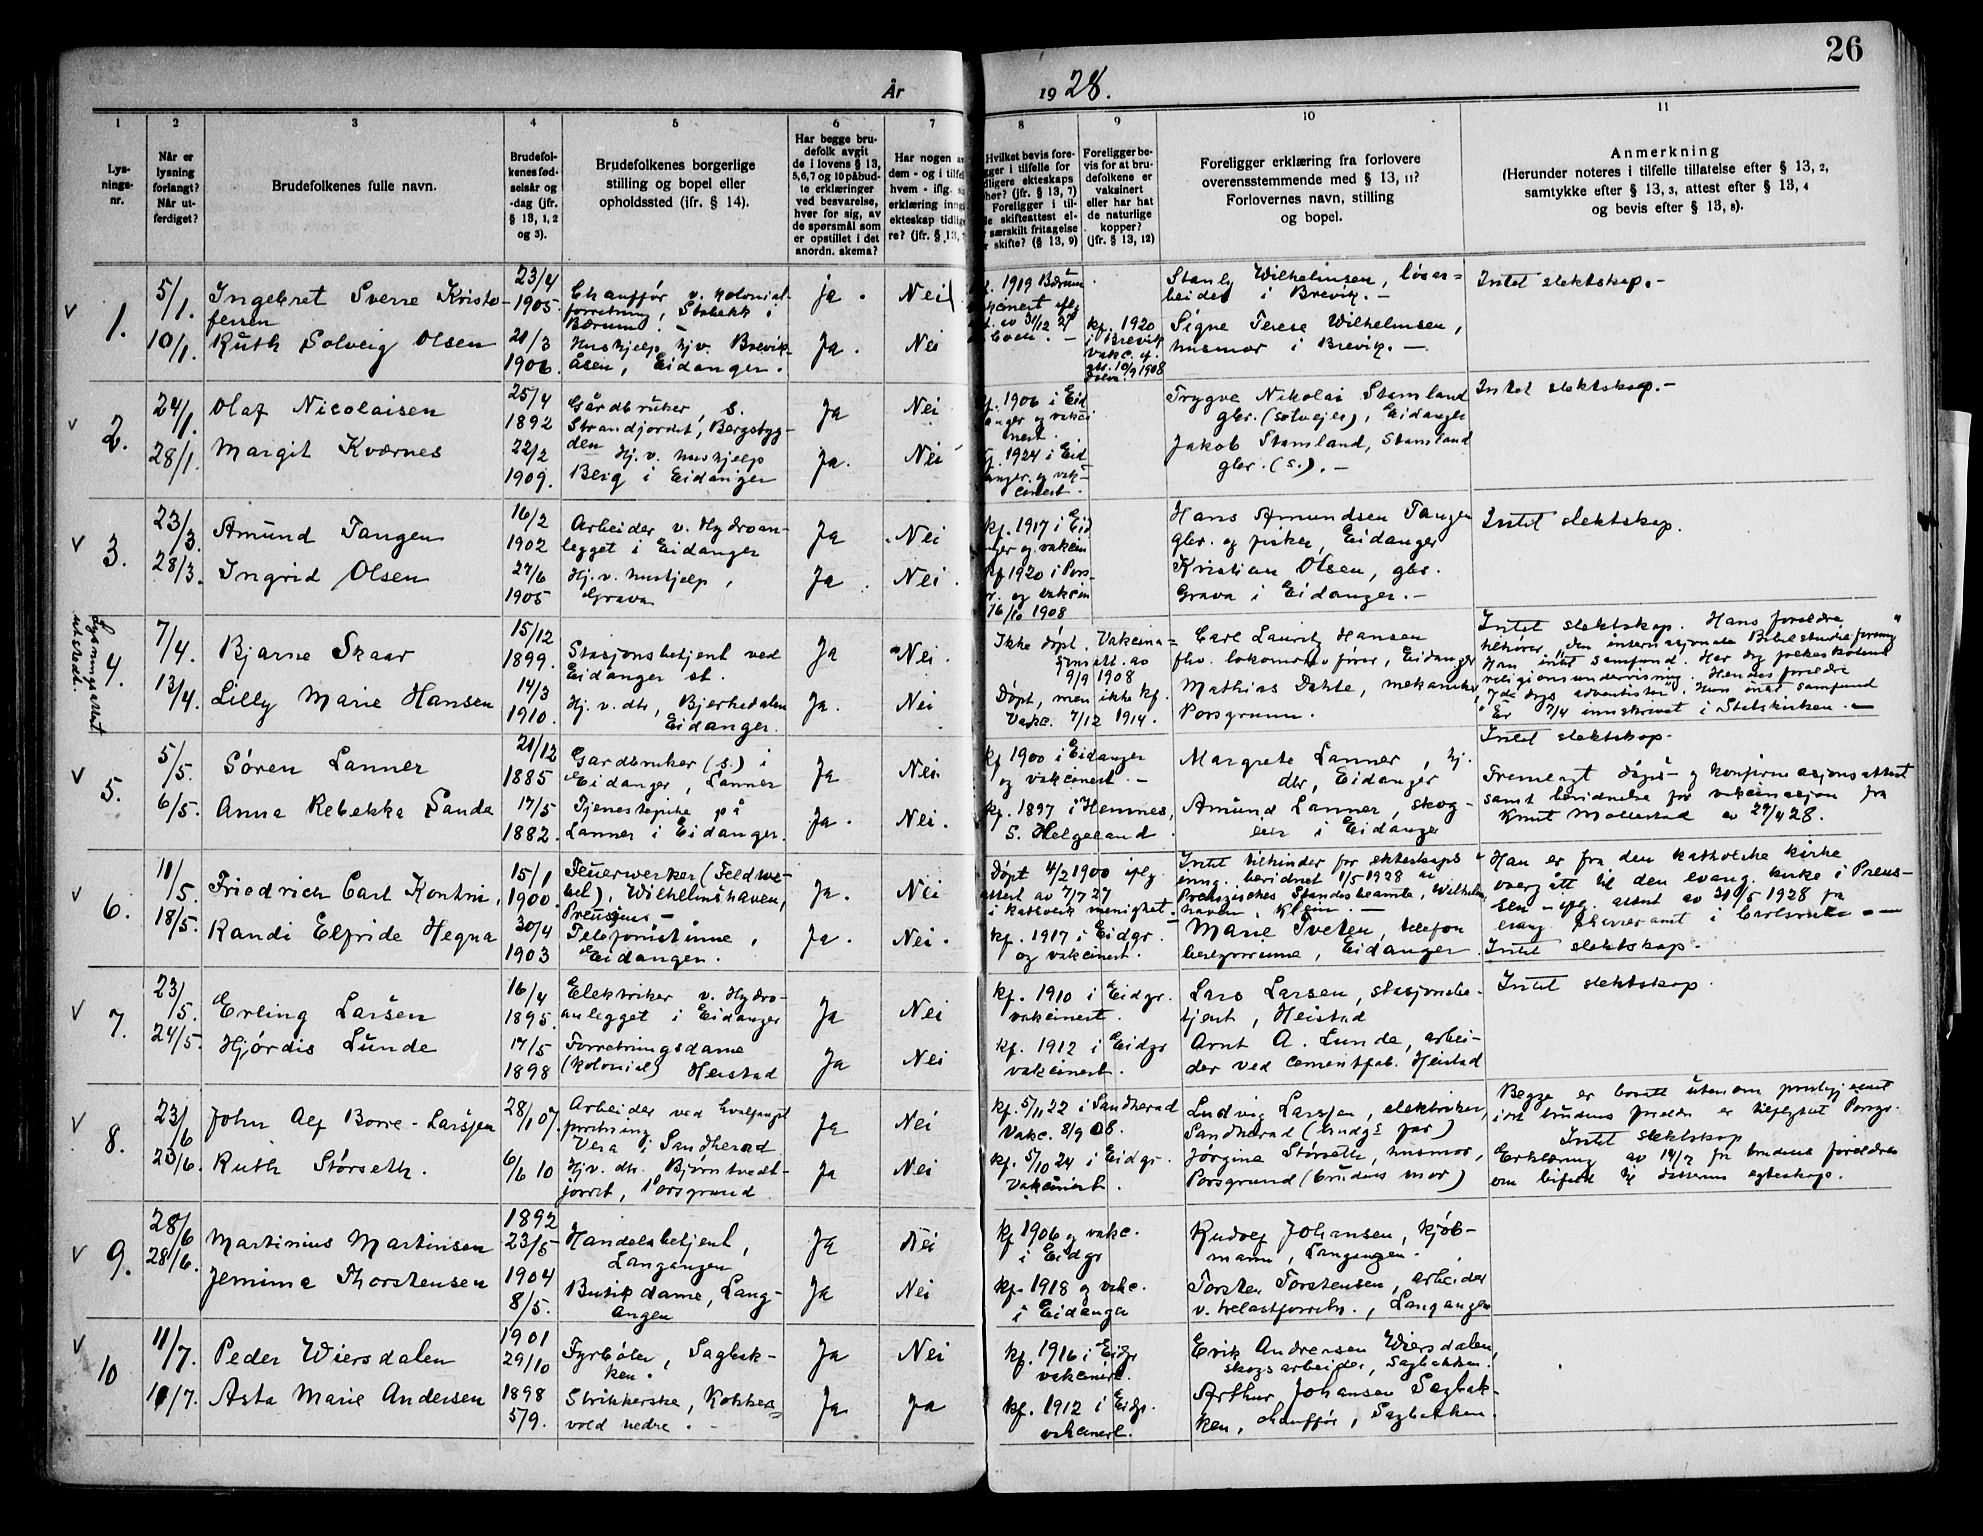 26
År 1928.
1 2 3 4 5 6 7 8 9 10 11
Lys-
nings-
nr.
Når er
lysning
forlangt?
Når ut-
ferdiget?
Brudefolkenes fulle navn.
Brudefol-
kenes fød-
selsår og
-dag (jfr.
§ 13, 1, 2
og 3).
Brudefolkenes borgerlige
stilling og bopel eller
opholdssted (ifr. § 14).
Har begge bru-
defolk avgit
de i lovens § 13,
5,6,7 og 10 påbud-
te erklæringer
ved besvarelse,
hver for sig, av
de spørsmål som
er opstillet i det
anordn. skema?
Har nogen a
dem - og i tilfel
hvem - iflg.
erklæring inng
ekteskap tidlig
re? (jfr. § 13,
Hvilket bevis fore-
gger i tilfelle for
dligere ekteskaps
her? (jfr. § 13, 7)
Foreligger i til-
le skifteattest el-
særskilt fritagelse
skifte? (§ 13, 9)
Foreligger be-
vis for at bru-
defolkene er
vaksinert
eller har hat
de naturlige
kopper?
(jfr. § 13, 12)
Foreligger erklæring fra forlovere
overensstemmende med § 13, 11?
Forlovernes navn, stilling
og bopel.
Anmerkning
(Herunder noteres i tilfelle tillatelse efter § 13, 2,
samtykke efter § 13, 3, attest efter § 13, 4
og bevis efter § 13, 8).
v 1.
5/1.
10/1.
Ingebret Sverre Kristo-
fersen
Ruth Solveig Olsen
23/4
1905
21/3
1906.
Chauffør v. kolonial-
forretning, Stabekk i
Bærum. -
Hushjelp hjv. Brevik-
åsen, Eidanger.
Ja. Nei
Ja. Nei
1919 Bærum
kf. 1920
i Brevik
vakc.
10/9 1908
Stanly Wilhelmsen, løsar-
beider i Brevik. -
Signe Terese Wilhelmsen,
husmor i Brevik. -
Intet slektskap. -
v 2.
24/1.
28/1.
Olaf Nicolaisen
Margit Kværnes
25/4
1892
22/2
1909.
Gårdbruker, s.
Strandjordet, Bergsbyg-
den
Hj. v. hushjelp
Berg i Eidanger
Ja Nei
Ja. Nei
kf. 1906 i Eid
anger og vakci
nert.
kf. 1924 i Eid
anger og vak-
cinert.
Trygve Nikolai Stamland
gbr. (selveier), Eidanger
Jakob Stamland, Stamland
gbr. (s.). -
Intet slektskap. -
v 3.
23/3.
28/3.
Amund Tangen
Ingrid Olsen
16/2
1902
27/6
1905
Arbeider v. Hydroan-
legget i Eidanger
Hj. v. hushjelp,
Grava
Ja Nei
Ja Nei.
kf. 1917 i Eid
nger og vakcin
kf 1920 i Pors-
gr. og vakcin
16/10 1908
Hans Amundsen Tangen
gbr. og fisker, Eidanger
Kristian Olsen, gbr.
Grava i Eidanger. -
Intet slektskap.
Lysningsattest
utstedt.
4.
7/4.
13/4.
Bjarne Skaar
Lilly Marie Hansen
15/12
1899.
14/3
1910.
Stasjonsbetjent ved
Eidanger st.
Hj. v. dtr, Bjerkedalen
Eidanger.
Ja Nei.
Ja. Nei
Ikke døpt. Vakcina-
sjonsatt. av
9/9 1908
Døpt, men ikke kf.
Vakc. 7/12 1914.
Carl Lauritz Hansen
fhv. lokomotivfører, Eidanger
Mathias Dahle, mekaniker,
Porsgrunn.
Intet slektskap. Hans foreldre
tilhører „Den internasjonale Bibelstudieforening"
Han intet samfund. Har dog folkeskolens
religionsundervisning. Hendes foreldre
„7de dags adventister". Hun intet samfund
Er 7/4 innskrevet i Statskirken. -
v 5.
5/5.
6/5.
Søren Lanner
Anna Rebekka Sanda
21/12
1885
17/5
1882.
Gardbruker (s.) i
Eidanger, Lanner
Tjenestepike på
Lanner i Eidanger.
Ja Nei.
Ja. Nei.
kf 1900 i Eidanger
og vakcinert. -
kf. 1897 i Hemnes,
S. Helgeland
Margrete Lanner, hj.
dtr, Eidanger
Amund Lanner, skog-
eier i Eidanger
Intet slektskap.
Fremlagt dåps- og konfirmasjonsattest
samt beridnelse for vakcinasjon fra
Knut Møllestad av 29/4 28.
v 6.
11/5.
18/5.
Friedrich Carl Kontni,
Randi Elfride Hegna
15/1
1900.
30/4
1903
Feuerwerker (Feldwe-
bel), Wilhelmshaven,
Preusjens -
Telefonistinne,
Eidanger.
Ja. Nei
Ja. Nei.
Døpt 4/2 1900 iflg.
attest av 7/7 27
i katholsk menighet.
kf. 1917 i Eidgr.
og vakcinert.
Intet tilhinder for ekteskaps
inng. beridnet 1/5 1928 av
Preuszisches Standesbeamte, Wilhelms
haven, Klein. -
Marie Tveten, telefon
bestyrerinne, Eidanger.
Han er fra den katholske kirke
overgått til den evang. kirke i Preus-
sen - iflg. attest av 31/5 1928 fra
evang. Pfarramt i Carlsruhe. -
Intet slektskap.
v 7.
23/5.
24/5.
Erling Larsen
Hjørdis Lunde
16/4
1895.
17/5
1898
Elektriker v. Hydro-
anlegget i Eidanger
Forretningsdame
(kolonial) Heistad
Ja Nei
Ja Nei
kf. 1910 i Eidgr.
vakcinert.
kf. 1912 i Eidgr
vakcinert.
Lars Larsen, stasjonsbe-
tjent, Heistad
Arnt A. Lunde, arbei-
der ved cementfab. Heistad
Intet slektskap.
v 8.
23/6
23/6.
John Alf Borre-Larsjen
Ruth Størseth.
28/1 07.
6/6 10
Arbeider ved hvalfangst
forretning
Vera i Sandherad
Hjv. dtr. Bjørntvedt-
jordet, Porsgrund
Ja Nei
Ja Nei
kf. 5/11 22 i Sandherad
Vakc. 8/9 08.
kf. 5/10 24 i Eidgr.
Vakcinert.
Ludvig Larsjen, elektriker,
Sandherad (brudgs far)
Jørgine Størseth, husmor,
Porsgrund (brudens mor)
Begge er borte utenom prestegjeldet
idet brudens foreldre er tilflyttet Porsgr.
Intet slektskap
Erklæring av 14/7 fra brudens foreldre
om bifald til datterens egteskap.
v 9.
28/6
28/6.
Martinius Martinsen
Jemima Thorstensen
1892
23/5
1904
8/5.
Handelsbetjent,
Langangen
Butikdame, Lang-
angen
Ja Nei
Ja Nei
kf 1906 og vakc.
i Eidgr
kf. 1918 og vakc.
i Eidanger
Rudolf Johansen, kjøb-
mann, Langangen.
Torsten Torstensen, arbeider
v. trelastforretn., Langangen
v 10
11/7.
11/7.
Peder Wiersdalen
Asta Marie Andersen
1901
29/10
1898
5/9.
Fyrbøter, Sagbak-
ken.
Strikkerske, Kokkers-
vold nedre. -
Ja Nei
Ja Ja
kf. 1916 i Eidgr
vakcinert.
kf. 1912 i Eidgr.
vakcinert.
Erik Andersen Wiersdalen,
skogsarbeider, Sagbakken.
Arthur Johansen Sagbak-
ken, chauffør, Sagbakken.